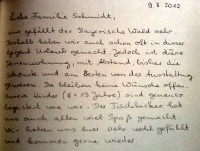 9.8.2012
Liebe Familie Schmidt,
uns gefällt der Bayerische Wald sehr.
Deshalb haben wir auch schon oft in dieser
Gegend Urlaub gemacht. Jedoch ist diese
Ferienwohnung, mit Abstand bisher die
schönste und am besten von der Ausstattung
gewesen. Da bleiben keine Wünsche offen.
Unsere Kinder (8 + 13 Jahre) sind genauso
begeistert wie wir. Der Tischkicker hat
uns auch allen viel Spaß gemacht.
Wir haben uns hier sehr wohl gefühlt
und kommen gerne wieder.